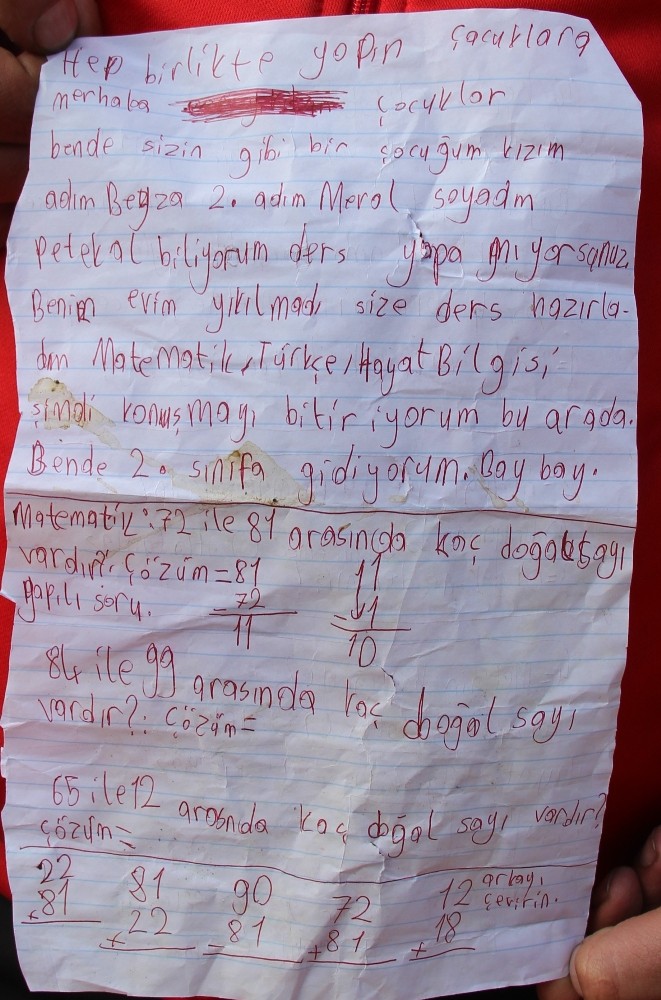 Hep birlikte yapın çocuklara
merhaba çocuklar
bende sizin gibi bir çocuğum kızım
adım Beyza 2. adım Meral soyadm
petekal biliyorum ders yapa mıyorsunuz
Benim evim yıkılmadı size ders hazırla-
dım Matematik, Türkçe, Hayat Bilgisi
şimdi konuşmayı bitir iyorum bu arada.
Bende 2. sınıfa gidiyorum. Bay bay.
Matematik: 72 ile 81 arasında kaç doğal sayı
vardır?: çözüm = 81 11
yapılı soru. - 72 - 1
11 10
84 ile 99 arasında kaç doğal sayı
vardır?: çözüm =
65 ile 12 arasında kaç doğal sayı vardır?
çözüm =
22 81 90 72 12 arkayı
+81 +22 -81 +81 +18 çevirin.